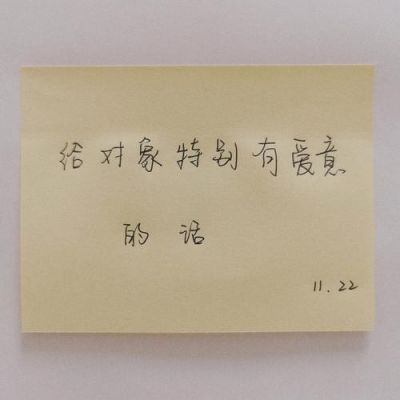 给对象特别有爱意
的话
11.22